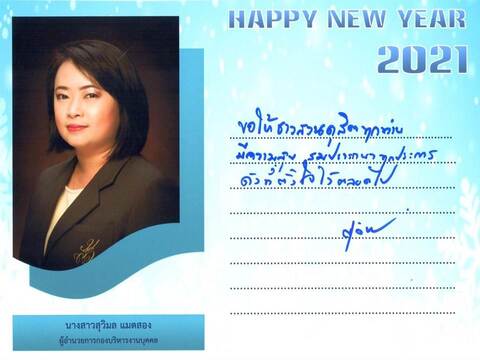 HAPPY NEW YEAR
2021
ขอให้ชาวสวนดุสิตทุกท่าน
มีความสุข สมปรารถนาทุกประการ
ดังที่ตั้งใจไว้ตลอดไป
นางสาวสุวิมล แมตสอง
ผู้อำนวยการกองบริหารงานบุคคล